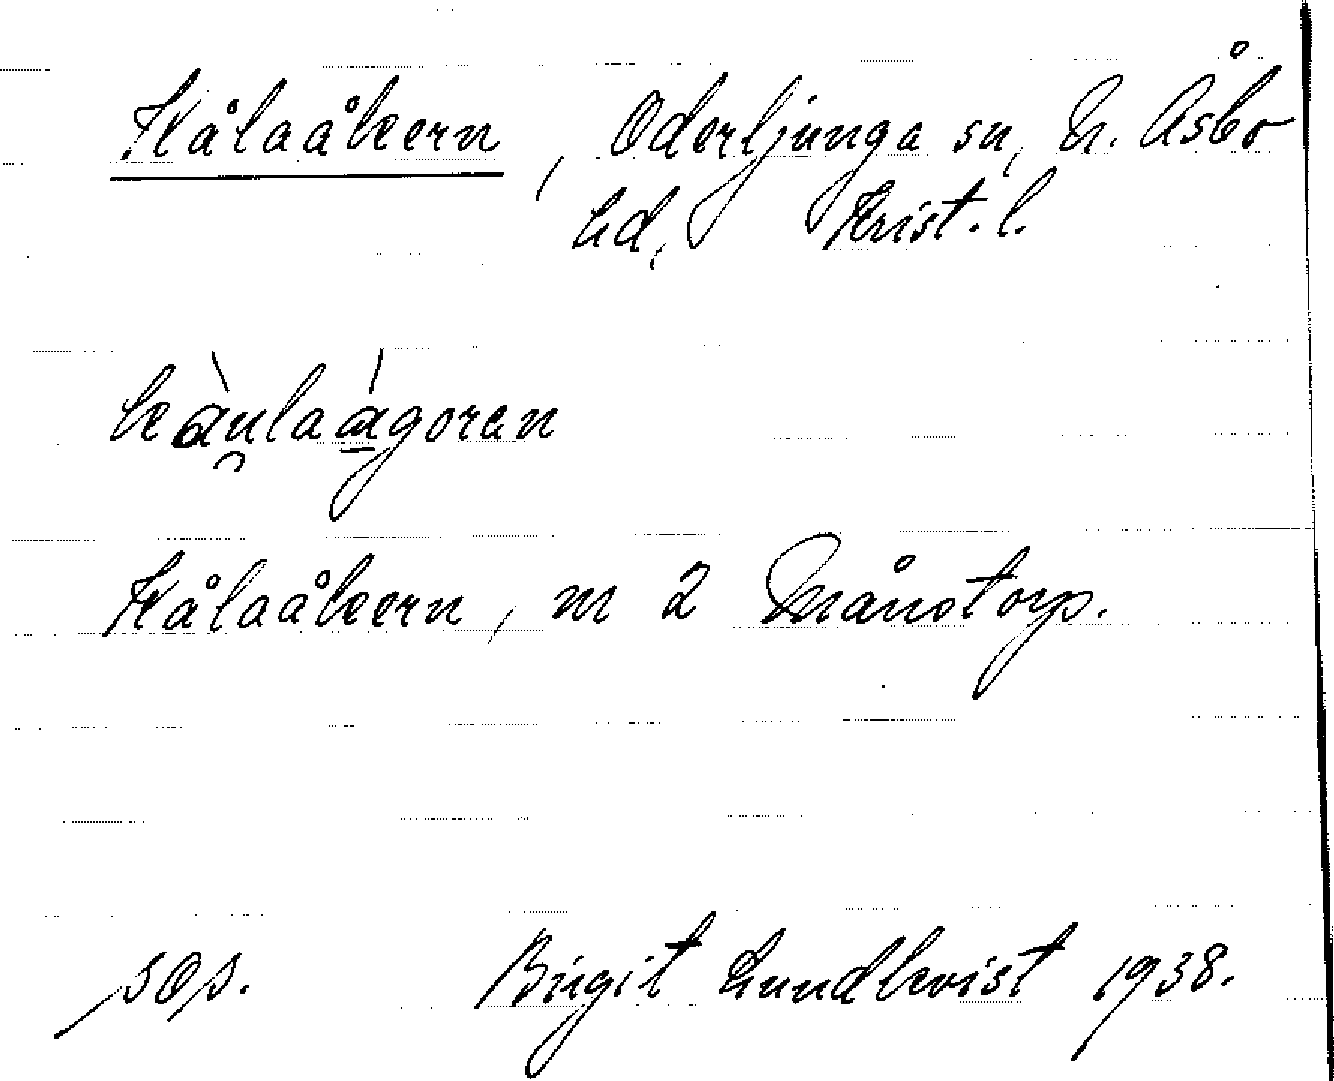 Kålaåkern, Oderljunga sn, N. Åsbo
hd, Krist. l.
kàu̯laágoren
Kålaåkern, m 2 Månstorp.
sop. Birgit Lundkvist 1938.